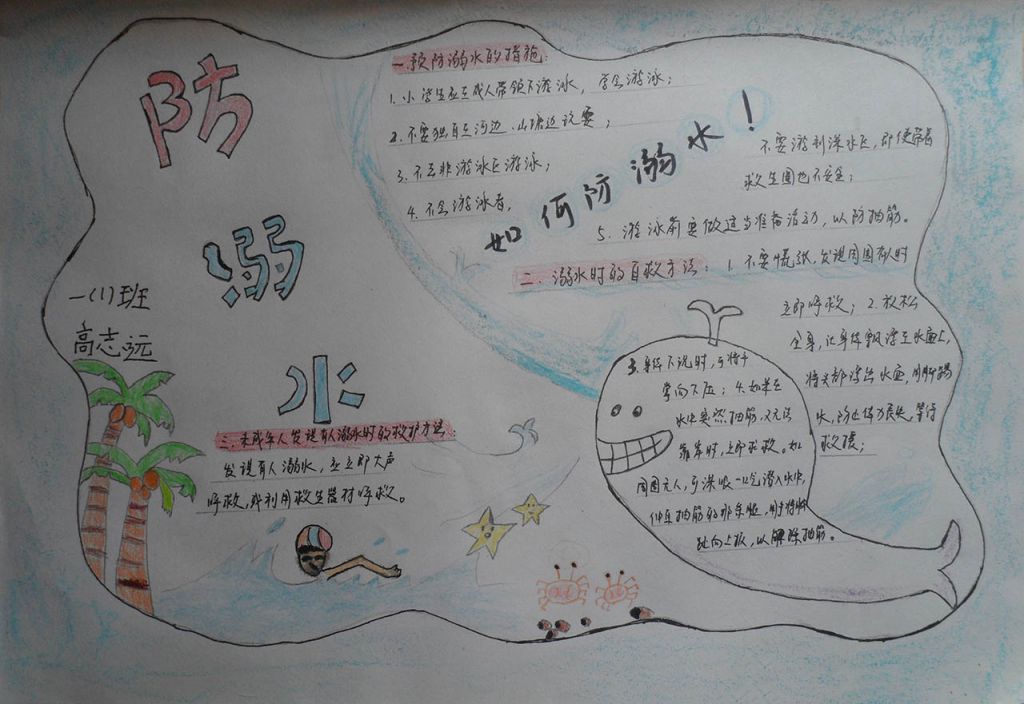 防
溺
水
一(1)班
高志远
如何防溺水！
一.预防溺水的措施：
1. 小学生应在成人带领下游泳，学会游泳；
2. 不要独自在河边、山塘边玩耍；
3. 不去非游泳区游泳；
4. 不会游泳者，
不要游到深水区，即使带着
救生圈也不安全；
5. 游泳前要做适当准备活动，以防抽筋。
二.溺水时的自救方法：1. 不要慌张，发现周围有人时
立即呼救；2.放松
全身，让身体飘浮在水面上，
将头部浮出水面，用脚踢
水，防止体力丧失，等待
救援；
3.身体下沉时，可将手
掌向下压；4.如果在
水中突然抽筋，又无法
靠岸时，立即求救。如
周围无人，可深吸一口气潜入水中，
伸直抽筋的那条腿，用手将脚
趾向上扳，以解除抽筋。
三.未成年人发现有人溺水时的救护方法：
发现有人溺水，应立即大声
呼救，或利用救生器材呼救。